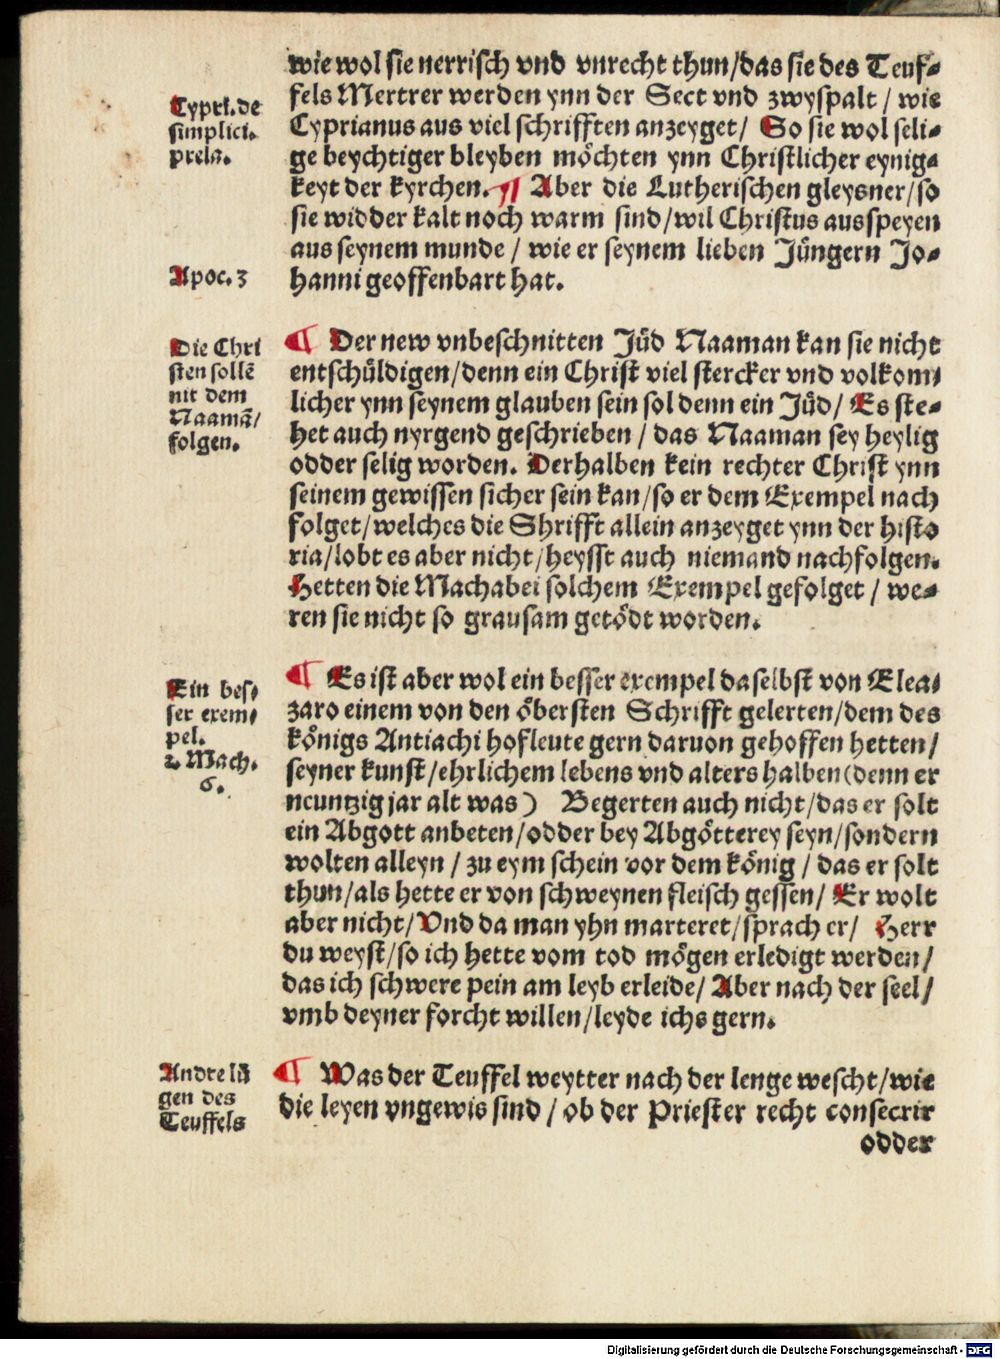 wie wol sie nerrisch vnd vnrecht thun/das sie des Teuf-
fels Mertrer werden ynn der Sect vnd zwyspalt / wie
Cypri. de
simplici.
prela.
Cyprianus aus viel schrifften anzeyget/ So sie wol seli-
ge beychtiger bleyben möchten ynn Christlicher eynig-
keyt der kyrchen. ¶ Aber die Lutherischen gleysner/so
sie widder kalt noch warm sind/wil Christus ausspeyen
aus seynem munde / wie er seynem lieben Jüngern Jo-
Apoc. 3
hanni geoffenbart hat.
Die Chri
sten sollē
nit dem
Naamā/
folgen.
¶ Der new vnbeschnitten Jüd Naaman kan sie nicht
entschüldigen/denn ein Christ viel stercker vnd volkom-
licher ynn seynem glauben sein sol denn ein Jüd/ Es ste-
het auch nyrgend geschrieben / das Naaman sey heylig
odder selig worden. Derhalben kein rechter Christ ynn
seinem gewissen sicher sein kan/so er dem Exempel nach
folget/welches die Shrifft allein anzeyget ynn der histo
ria/lobt es aber nicht/heysst auch niemand nachfolgen.
Hetten die Machabei solchem Exempel gefolget / we-
ren sie nicht so grausam getödt worden.
Ein bes-
ser exem-
pel.
2. Mach.
6.
¶ Es ist aber wol ein besser exempel daselbst von Elea-
zaro einem von den öbersten Schrifft gelerten/dem des
königs Antiachi hofleute gern daruon geholffen hetten/
seyner kunst/ehrlichem lebens vnd alters halben(denn er
neuntzig jar alt was) Begerten auch nicht/das er solt
ein Abgott anbeten/odder bey Abgötterey seyn/sondern
wolten alleyn / zu eym schein vor dem könig / das er solt
thun/als hette er von schweynen fleisch gessen/ Er wolt
aber nicht/Vnd da man yhn marteret/sprach er/ Herr
du weyst/so ich hette vom tod mögen erledigt werden/
das ich schwere pein am leyb erleide/ Aber nach der seel/
vmb deyner forcht willen/leyde ichs gern.
Andre lü
gen des
Teuffels
¶ Was der Teuffel weytter nach der lenge wescht/wie
die leyen vngewis sind / ob der Priester recht consecrir
odder
Digitalisierung gefördert durch die Deutsche Forschungsgemeinschaft - DFG